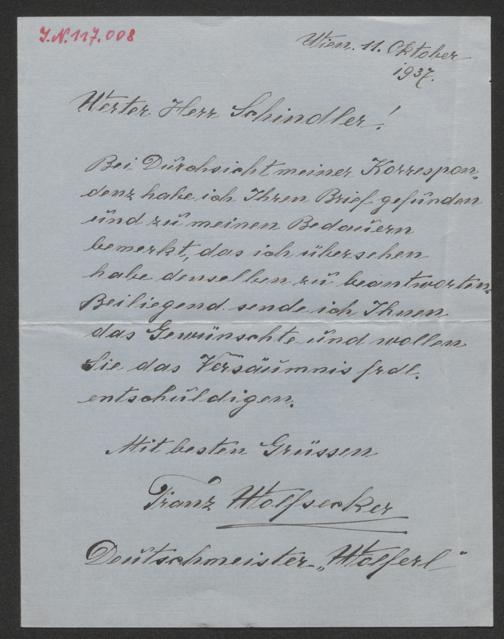 J.N. 117.008
Wien. 11. Oktober
1937.
Werter Herr Schindler!
Bei Durchsicht meiner Korrespon-
denz habe ich Ihren Brief gefunden
und zu meinen Bedauern
bemerkt, das ich übersehen
habe denselben zu beantworten.
Beiliegend sende ich Ihnen
das Gewünschte und wollen
Sie das Versäumnis frdl.
entschuldigen.
Mit besten Grüssen
Franz Wolfsecker
Deutschmeister-„Wolferl"